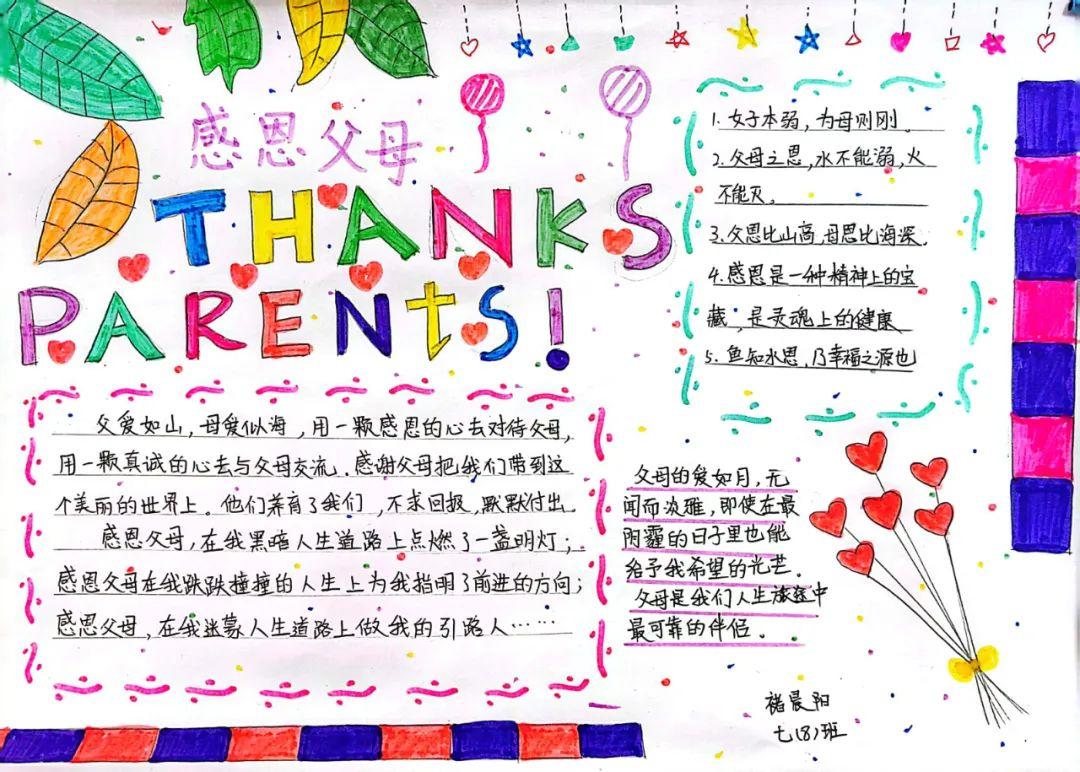 感恩父母
THANKS
PARENTS!
1. 女子本弱，为母则刚。
2. 父母之恩，水不能溺，火
不能灭。
3. 父恩比山高，母恩比海深。
4. 感恩是一种精神上的宝
藏，是灵魂上的健康
5. 鱼知水恩，乃幸福之源也
父爱如山，母爱似海，用一颗感恩的心去对待父母，
用一颗真诚的心去与父母交流。感谢父母把我们带到这
个美丽的世界上。他们养育了我们，不求回报，默默付出。
感恩父母，在我黑暗人生道路上点燃了一盏明灯；
感恩父母在我跌跌撞撞的人生上为我指明了前进的方向；
感恩父母，在我迷蒙人生道路上做我的引路人……
父母的爱如月，无
闻而淡雅，即使在最
阴霾的日子里也能
给予我希望的光芒。
父母是我们人生旅途中
最可靠的伴侣。
褚晨阳
七(8)班